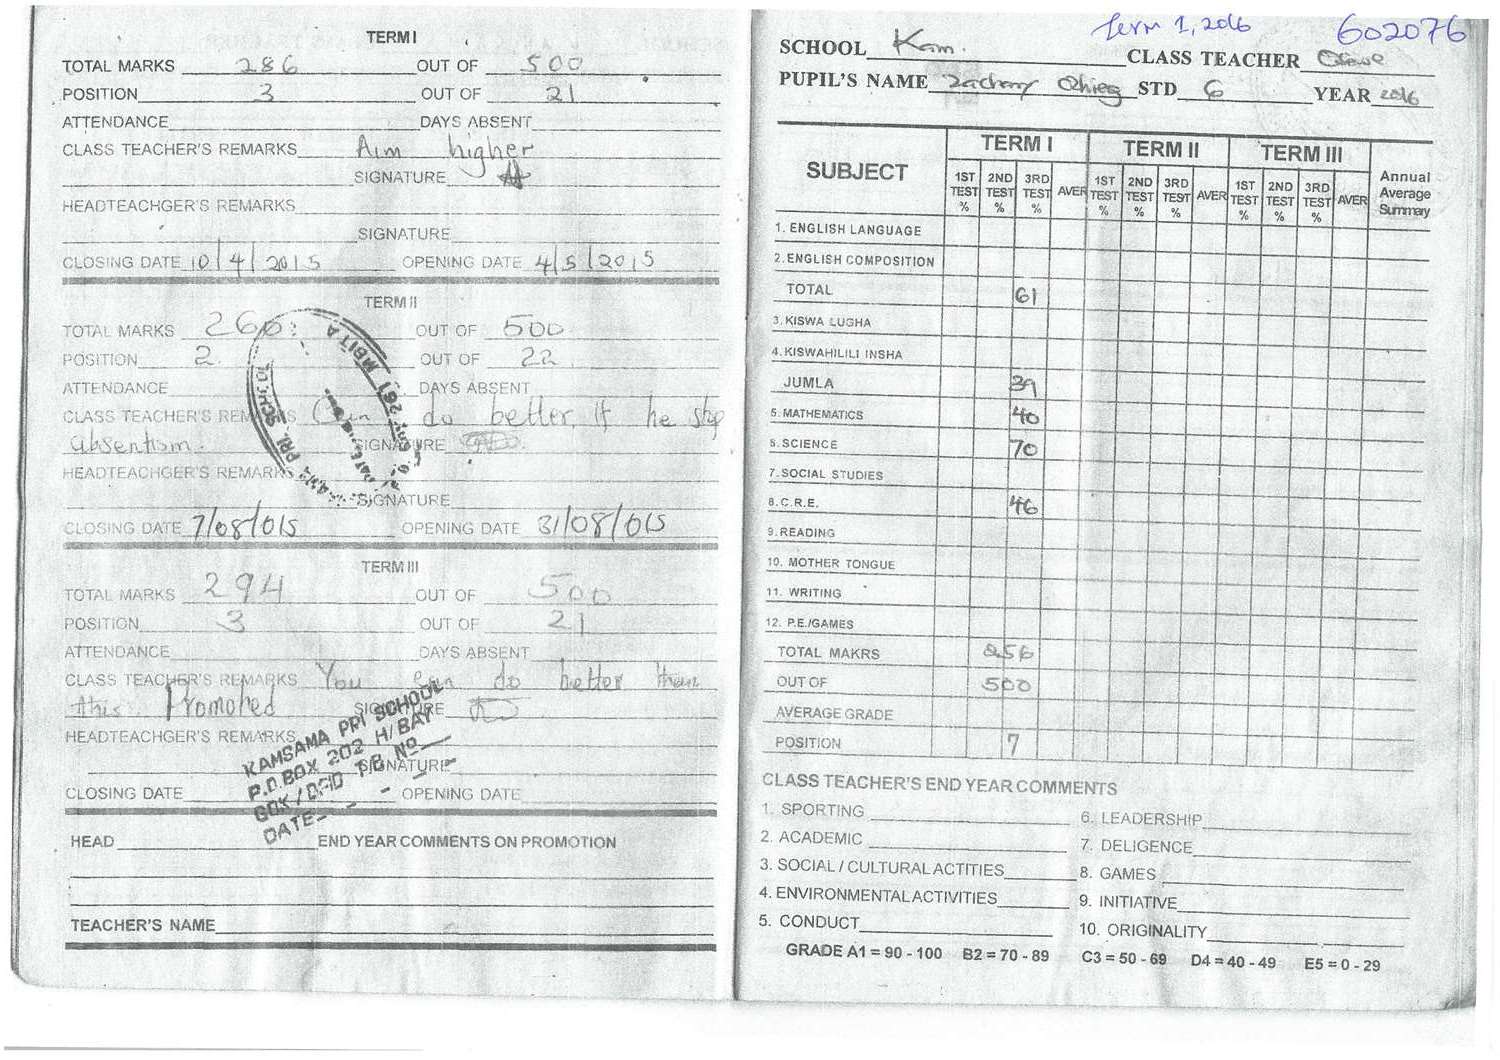 TERM I
TOTAL MARKS 286 OUT OF 500
POSITION 3 OUT OF 21
ATTENDANCE DAYS ABSENT
CLASS TEACHER'S REMARKS Aim higher
SIGNATURE
HEADTEACHGER'S REMARKS
SIGNATURE
CLOSING DATE 10/4/2015 OPENING DATE 4/5/2015
TERM II
TOTAL MARKS 260 OUT OF 500
POSITION 2. OUT OF 22
ATTENDANCE DAYS ABSENT
CLASS TEACHER'S REMARKS Can do better, If he stop
absentism. SIGNATURE
HEADTEACHGER'S REMARKS
SIGNATURE
CLOSING DATE 7/08/015 OPENING DATE 31/08/015
PRI. SCHOOL
MBITA
TERM III
TOTAL MARKS 294 OUT OF 500
POSITION 3 OUT OF 21
ATTENDANCE DAYS ABSENT
CLASS TEACHER'S REMARKS You can do better than
this. Promoted SIGNATURE
HEADTEACHGER'S REMARKS
SIGNATURE
CLOSING DATE OPENING DATE
KAMSAMA PRI SCHOOL
P.O.BOX 202 H/BAY
GOK/DFID P.B. Nº
DATE
HEAD END YEAR COMMENTS ON PROMOTION
TEACHER'S NAME
Term 1, 2016 602076
SCHOOL Kam. CLASS TEACHER
PUPIL'S NAME Zachary STD 6 YEAR 2016
SUBJECT TERM I TERM II TERM III Annual Average Summary
1ST TEST % 2ND TEST % 3RD TEST % AVER 1ST TEST % 2ND TEST % 3RD TEST % AVER 1ST TEST % 2ND TEST % 3RD TEST % AVER
1. ENGLISH LANGUAGE
2. ENGLISH COMPOSITION
TOTAL 61
3. KISWA LUGHA
4. KISWAHILILI INSHA
JUMLA 39
5. MATHEMATICS 40
6. SCIENCE 70
7. SOCIAL STUDIES
8. C.R.E. 46
9. READING
10. MOTHER TONGUE
11. WRITING
12. P.E./GAMES
TOTAL MAKRS 256
OUT OF 500
AVERAGE GRADE
POSITION 7
CLASS TEACHER'S END YEAR COMMENTS
1. SPORTING 6. LEADERSHIP
2. ACADEMIC 7. DELIGENCE
3. SOCIAL / CULTURAL ACTITIES 8. GAMES
4. ENVIRONMENTAL ACTIVITIES 9. INITIATIVE
5. CONDUCT 10. ORIGINALITY
GRADE A1 = 90 - 100 B2 = 70 - 89 C3 = 50 - 69 D4 = 40 - 49 E5 = 0 - 29